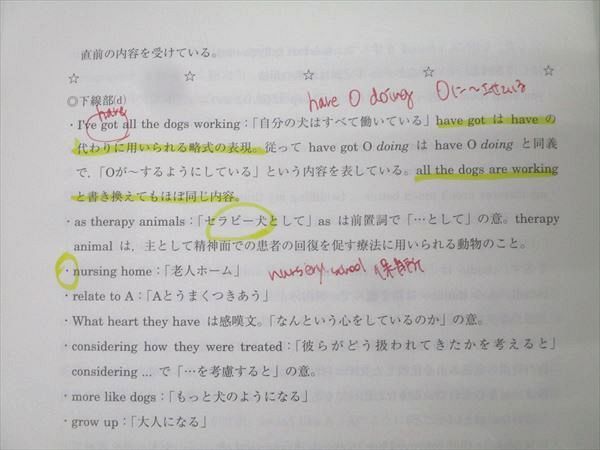 直前の内容を受けている。
☆ ☆ ☆ ☆ ☆
have O doing Oに〜させている
◎下線部(d)
have
・I've got all the dogs working：「自分の犬はすべて働いている」have got は have の
代わりに用いられる略式の表現。従って have got O doing は have O doing と同義
で，「Oが〜するようにしている」という内容を表している。all the dogs are working
と書き換えてもほぼ同じ内容。
・as therapy animals：「セラピー犬として」as は前置詞で「…として」の意。therapy
animal は，主として精神面での患者の回復を促す療法に用いられる動物のこと。
・nursing home：「老人ホーム」 nursery school 保育所
・relate to A：「Aとうまくつきあう」
・What heart they have は感嘆文。「なんという心をしているのか」の意。
・considering how they were treated：「彼らがどう扱われてきたかを考えると」
considering ... で「…を考慮すると」の意。
・more like dogs：「もっと犬のようになる」
・grow up：「大人になる」